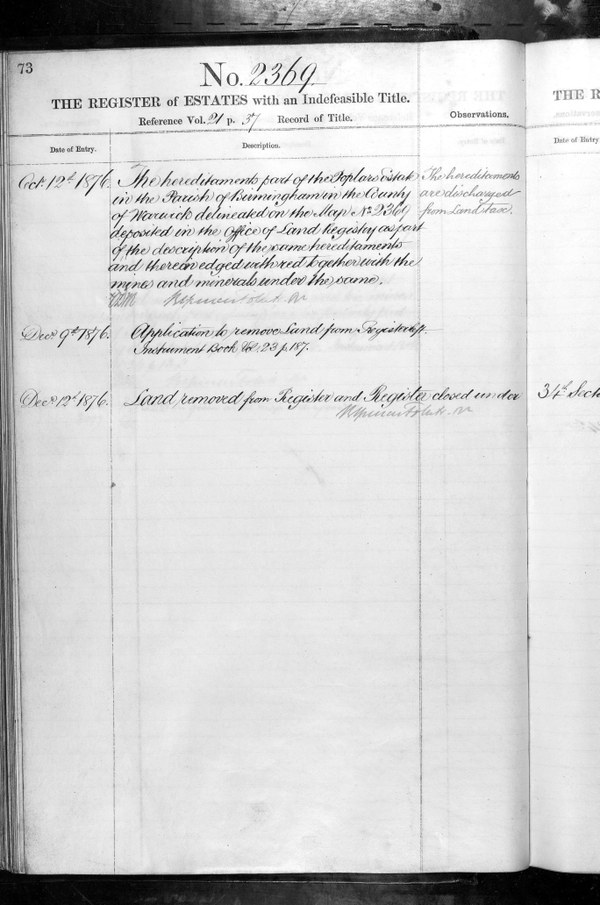 73
No. 2369
THE REGISTER of ESTATES with an Indefeasible Title.
Reference Vol. 21 p. 37 Record of Title.
Observations.
Date of Entry.
Description.
Octr. 12th 1876.
The hereditaments part of the Poplars estate
in the Parish of Birmingham in the County
of Warwick delineated on the Map No 2369
deposited in the Office of Land Registry as part
of the description of the same hereditaments
and therein edged with red together with the
mines and minerals under the same.
The hereditaments
are discharged
from Land tax.
Decr. 9th 1876.
Application to remove Land from Register
Instrument Book Vol. 23 p. 187.
Decr. 12th 1876.
Land removed from Register and Register closed under
THE R
Date of Entry
34th Sect